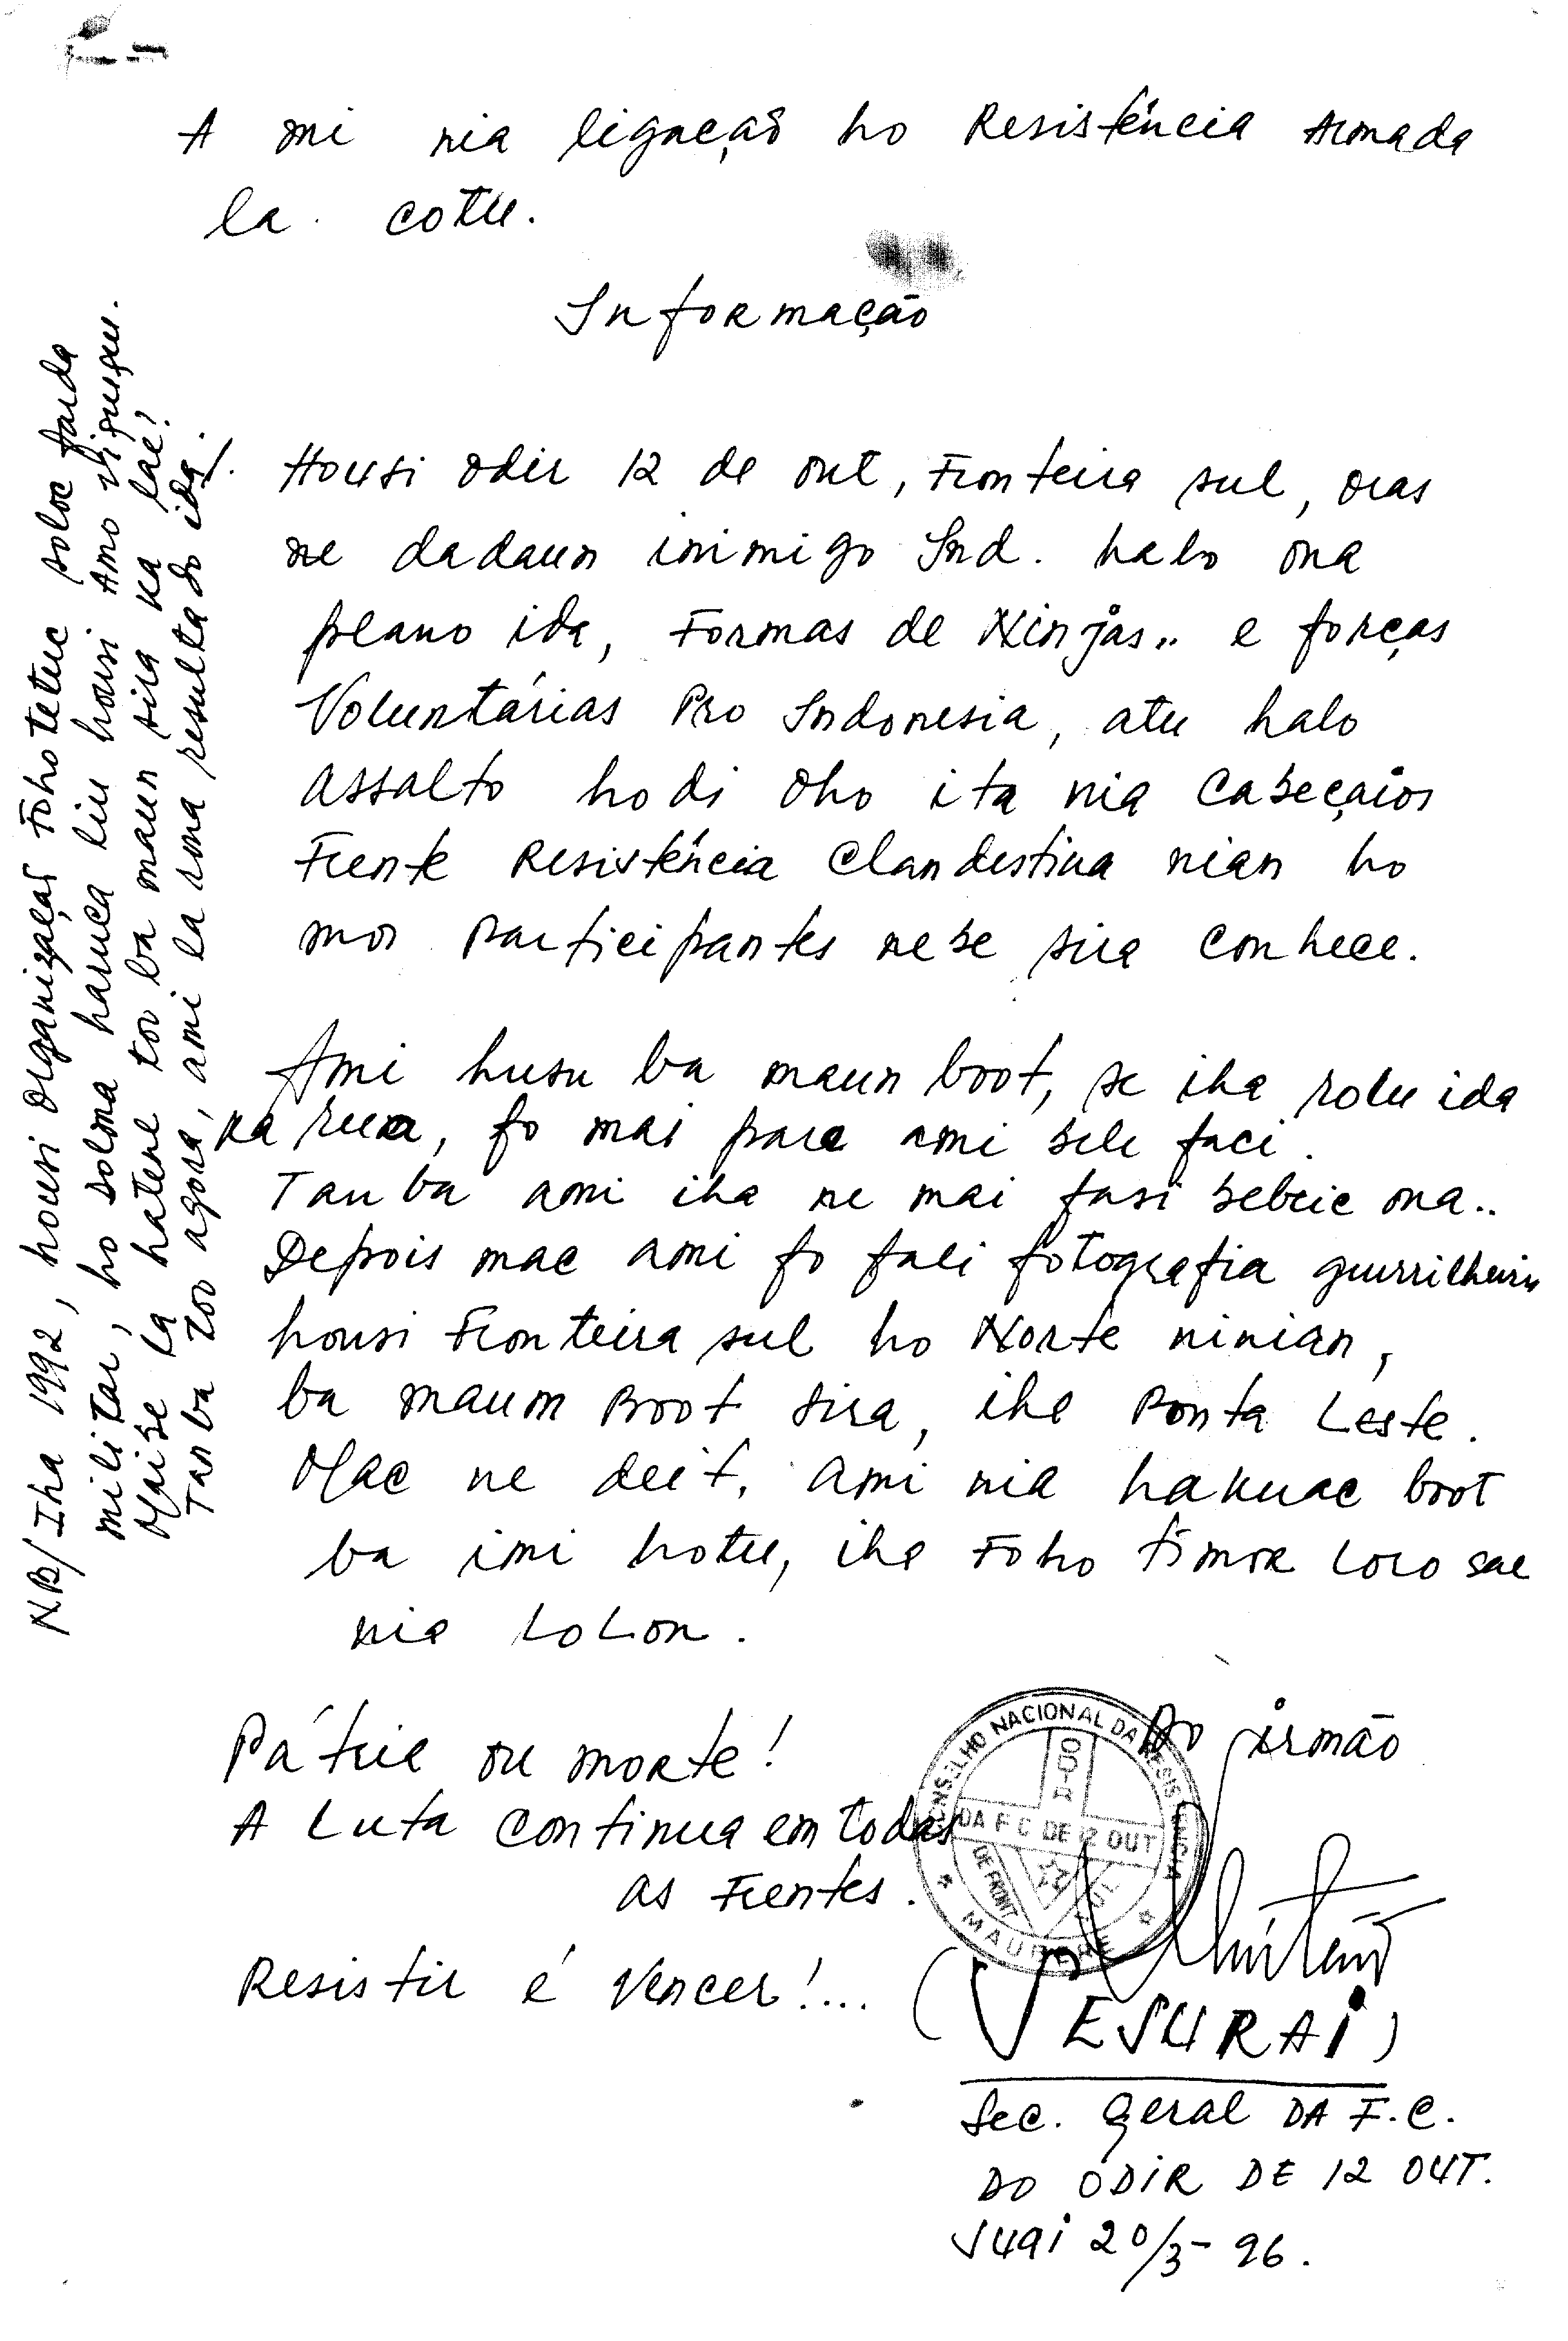 A mi nia ligação ho Resistência Armada
la cotu.
Informação
Housi Odir 12 de out, Fronteira sul, oras
ne dadaun inimigo Ind. halo ona
plano ida, Formas de Ninjas.. e forças
Voluntárias Pro Indonesia, atu halo
assalto hodi oho ita nia Cabeçaios
Frente Resistência Clandestina nian ho
mos Participantes nebe sira conhece.
Ami husu ba maun boot, se iha rolu ida
ka rua, fo mai para ami bele faci.
Tanba ami iha ne mai fasi bebeic ona..
Depois mac ami fo fali fotografia guerrilheiru
housi Fronteira sul ho Norte ninian,
ba maum Boot sira, iha Ponta Leste.
Mac ne deit. Ami nia hakuac boot
ba imi hotu, iha Foho Timor Loro sae
nia Lolon.
Pátria ou morte!
A Luta continua em todas
as Frentes.
Resistir é Vencer!...
Do irmão
CONSELHO NACIONAL DA RESISTENCIA
MAUBERE
DA F C DE 12 OUT
DE FRONT
SUL
(VESURAI)
Sec. Geral DA F.C.
DO ODIR DE 12 OUT.
SUAI 20/3-96.
N.B/ Iha 1992, housi Organização Foho teluc soloc farda
militar, ho solma haruca liu housi Amo Viqueque.
Maibe la hatene too ba maun sira ka lae!
Tanba too agora, ami la sma resultado ida!.